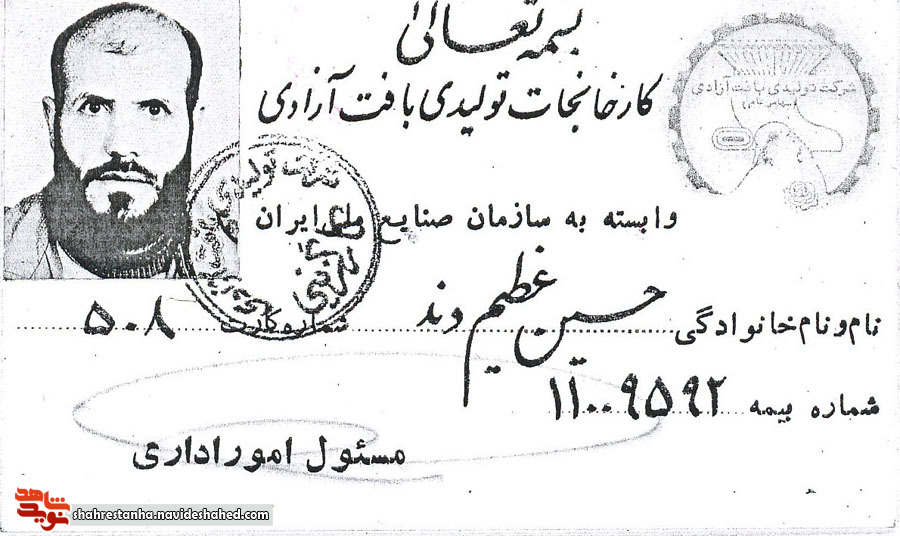 بسمه تعالی
کارخانجات تولیدی بافت آزادی
شرکت تولیدی بافت آزادی
(سهامی خاص)
وابسته به سازمان صنایع ملی ایران
نام و نام خانوادگی حسین عظیم وند شماره کارت ۵۰۸
شماره بیمه ۱۱۰۰۹۵۹۲
مسئول امور اداری
نوید شاهد
shahrestanha.navideshahed.com